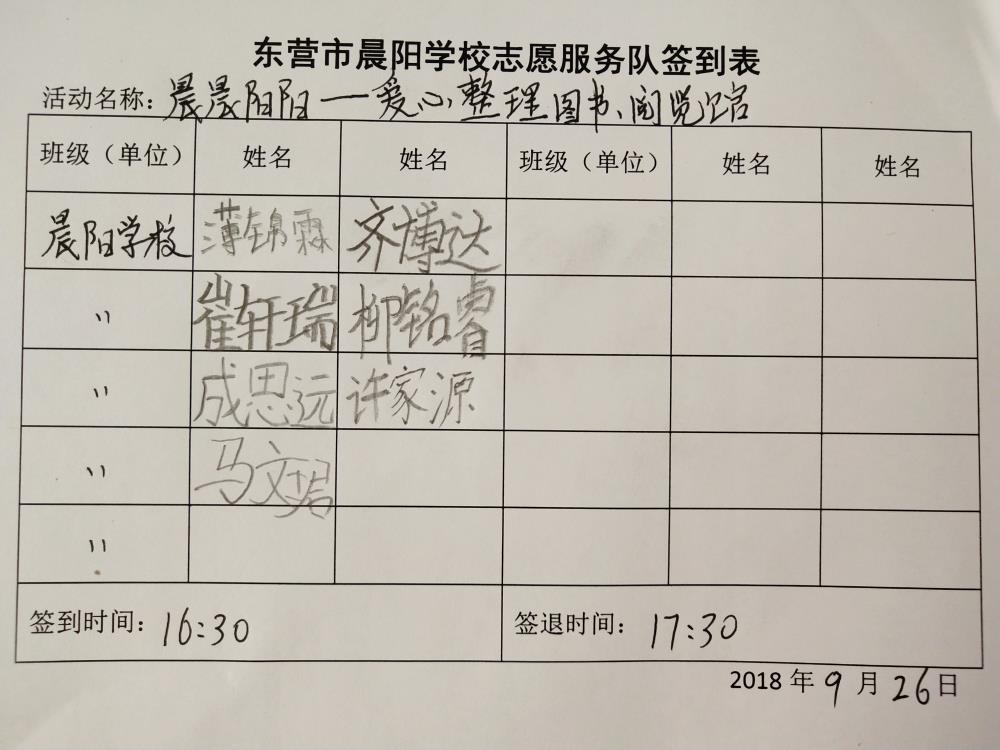 东营市晨阳学校志愿服务队签到表
活动名称：晨晨阳阳一爱心、整理图书、阅览馆
班级（单位） 姓名 姓名 班级（单位） 姓名 姓名
晨阳学校 薄锦霖 齐博达
〃 崔轩瑞 柳铭睿
〃 成思远 许家源
〃 马文
〃
签到时间：16:30 签退时间：17:30
2018年9月26日